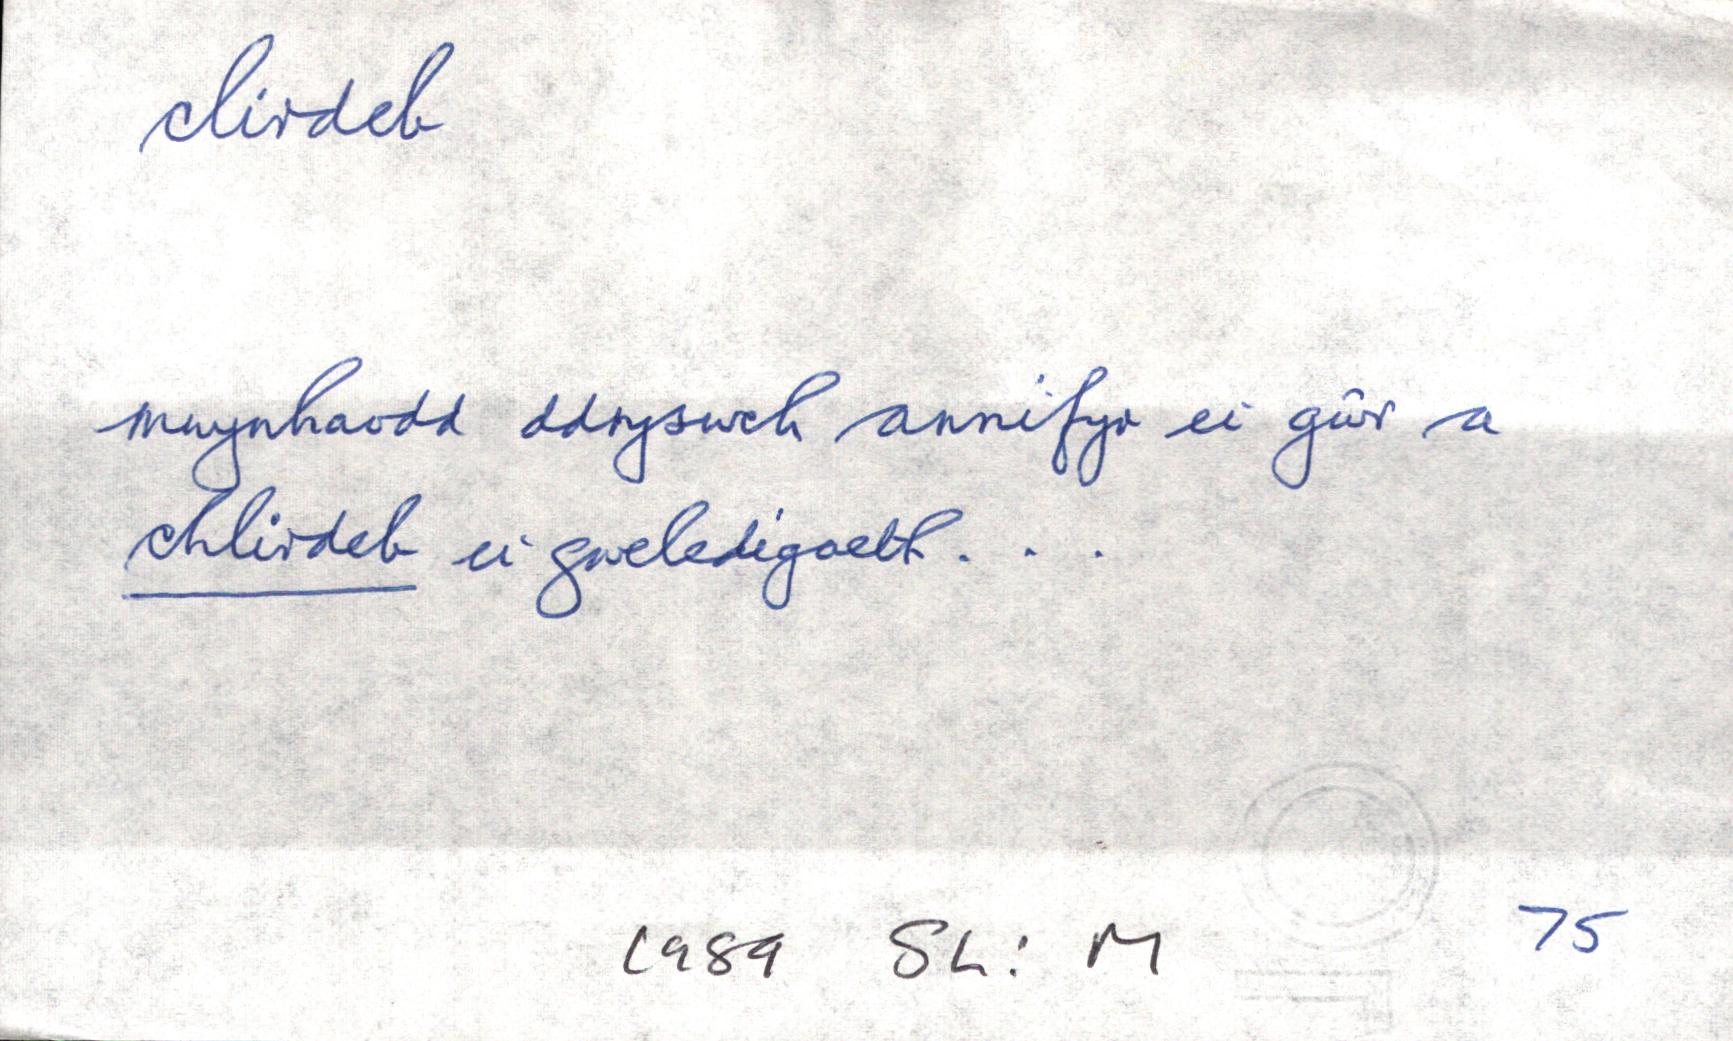 clirdeb
mwynhaodd ddryswch annifyr ei gŵr a
chlirdeb ei gweledigaeth. . .
1989 SL: M 75